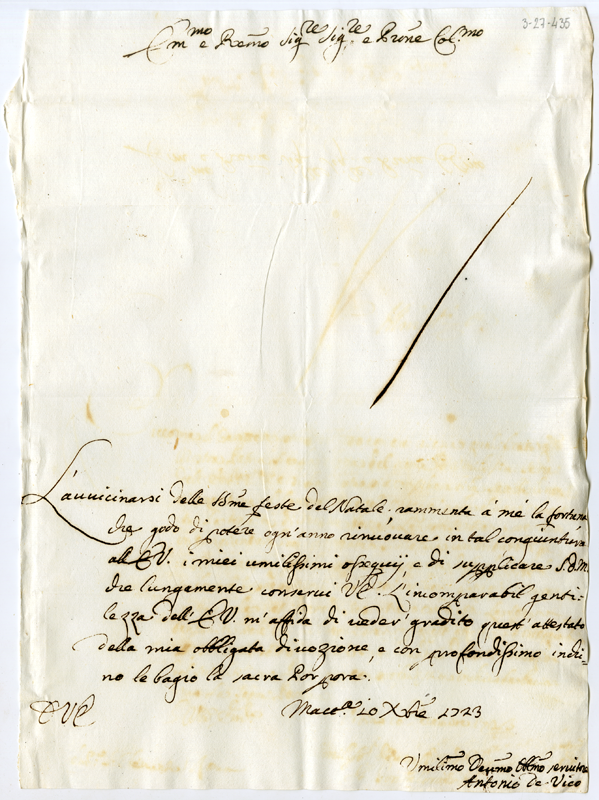 3-27-435
Em.mo e Rev.mo Sig.re Sig.re e Pron.e Col.mo
L'auuicinarsi delle SS.me feste del Natale, rammenta à mè la fortuna
che godo di potere ogn'anno rinuouare in tal congiuntura
all'E.V. i miei umilissimi ossequij e di supplicare S.D.M.
che lungamente conserui V.E. L'incomparabil genti-
lezza dell'E.V. m'affida di ueder gradito quest'attestato
della mia obbligata diuozione, e con profondissimo inchi-
no le bagio la sacra Porpora.
D V E
Mac.ta 20 Xbre 1723
Umilimo Deumo Obbmo seruitre
Antonio de Vico